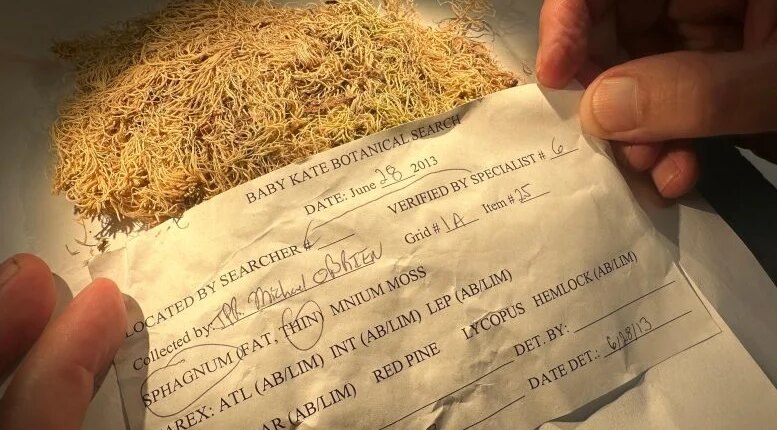 BABY KATE BOTANICAL SEARCH
DATE: June 28 2013
LOCATED BY SEARCHER # VERIFIED BY SPECIALIST # 6
Collected by: TPR. Michael O'BRIEN Grid # 1A Item # 25
SPHAGNUM (FAT, THIN) MNIUM MOSS
AREX: ATL (AB/LIM) INT (AB/LIM) LEP (AB/LIM)
AR (AB/LIM) RED PINE LYCOPUS HEMLOCK (AB/LIM)
DET. BY:
DATE DET.: 6/28/13